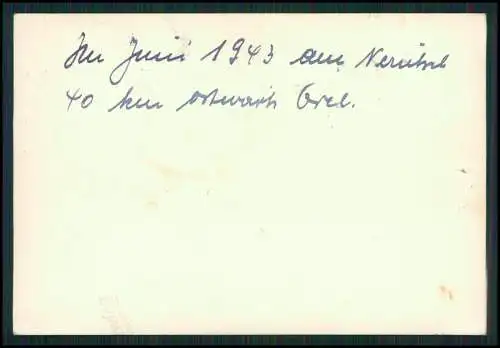 Im Juni 1943 am Nerutsch
40 km ostwärts Orel.